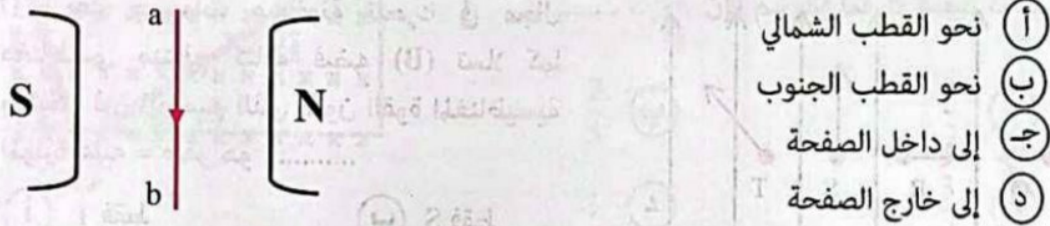 أ نحو القطب الشمالي
ب نحو القطب الجنوب
جـ إلى داخل الصفحة
د إلى خارج الصفحة
a
S N
b